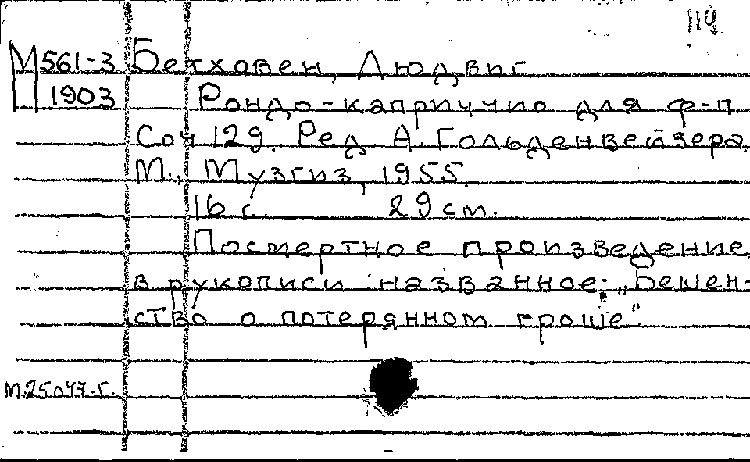 114
М561-3 Бетховен, Людвиг
П 1903 Рондо-каприччио для ф-п.
Соч 129. Ред А. Гольденвейзера.
М., Музгиз, 1955.
16 с. 29 см.
Посмертное произведение,
в рукописи названное: „Бешен-
ство о потерянном гроше“.